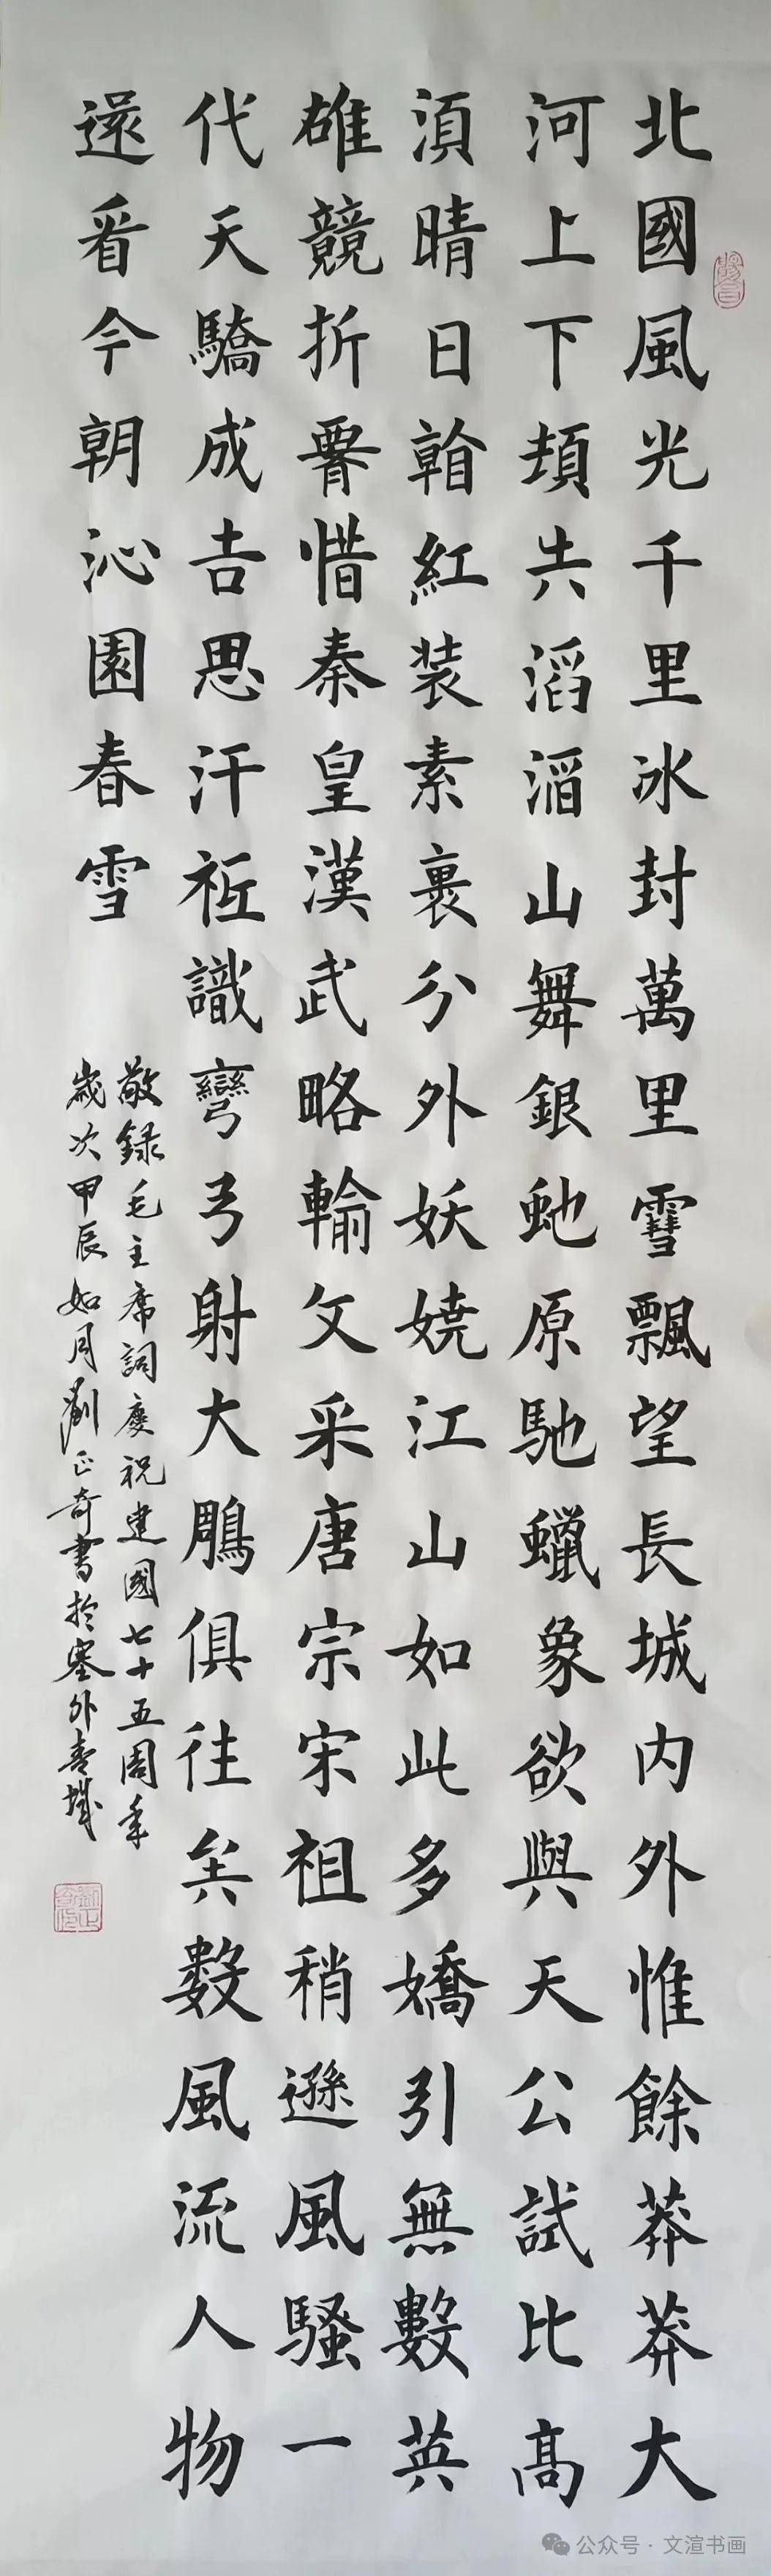 北國風光千里冰封萬里雪飄望長城内外惟餘莽莽大
河上下頓失滔滔山舞銀虵原馳蠟象欲與天公試比高
須晴日看紅装素裹分外妖嬈江山如此多嬌引無數英
雄競折腰惜秦皇漢武略輸文采唐宗宋祖稍遜風騷一
代天驕成吉思汗衹識彎弓射大鵰俱往矣數風流人物
還看今朝沁園春雪
敬録毛主席詞慶祝建國七十五周年
歲次甲辰如月劉正奇書於塞外青城
公众号·文渲书画